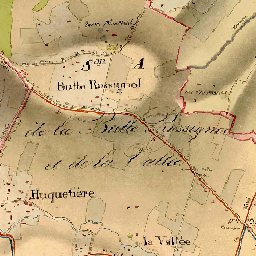 Son A
Butte Rossignol
de la Butte Rossignol
et de la Vallée
Huquetière
la Vallée